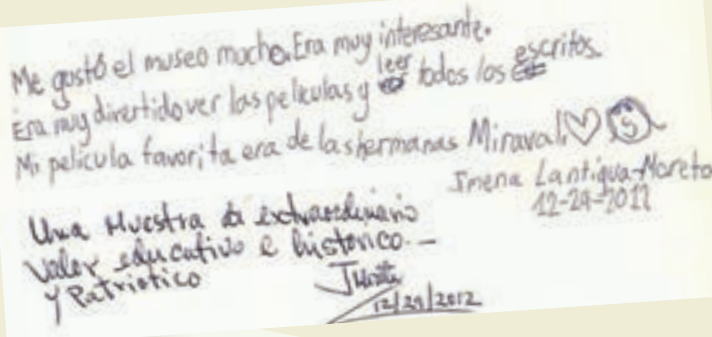 Me gustó el museo mucho. Era muy interesante.
Era muy divertido ver las peliculas y leer todos los escritos.
Mi pelicula favorita era de las hermanas Miraval
Imena Lantigua-Moreto
12-29-2012
Una Muestra de extraordinario
valor educativo e historico. —
y Patriotico
12/29/2012